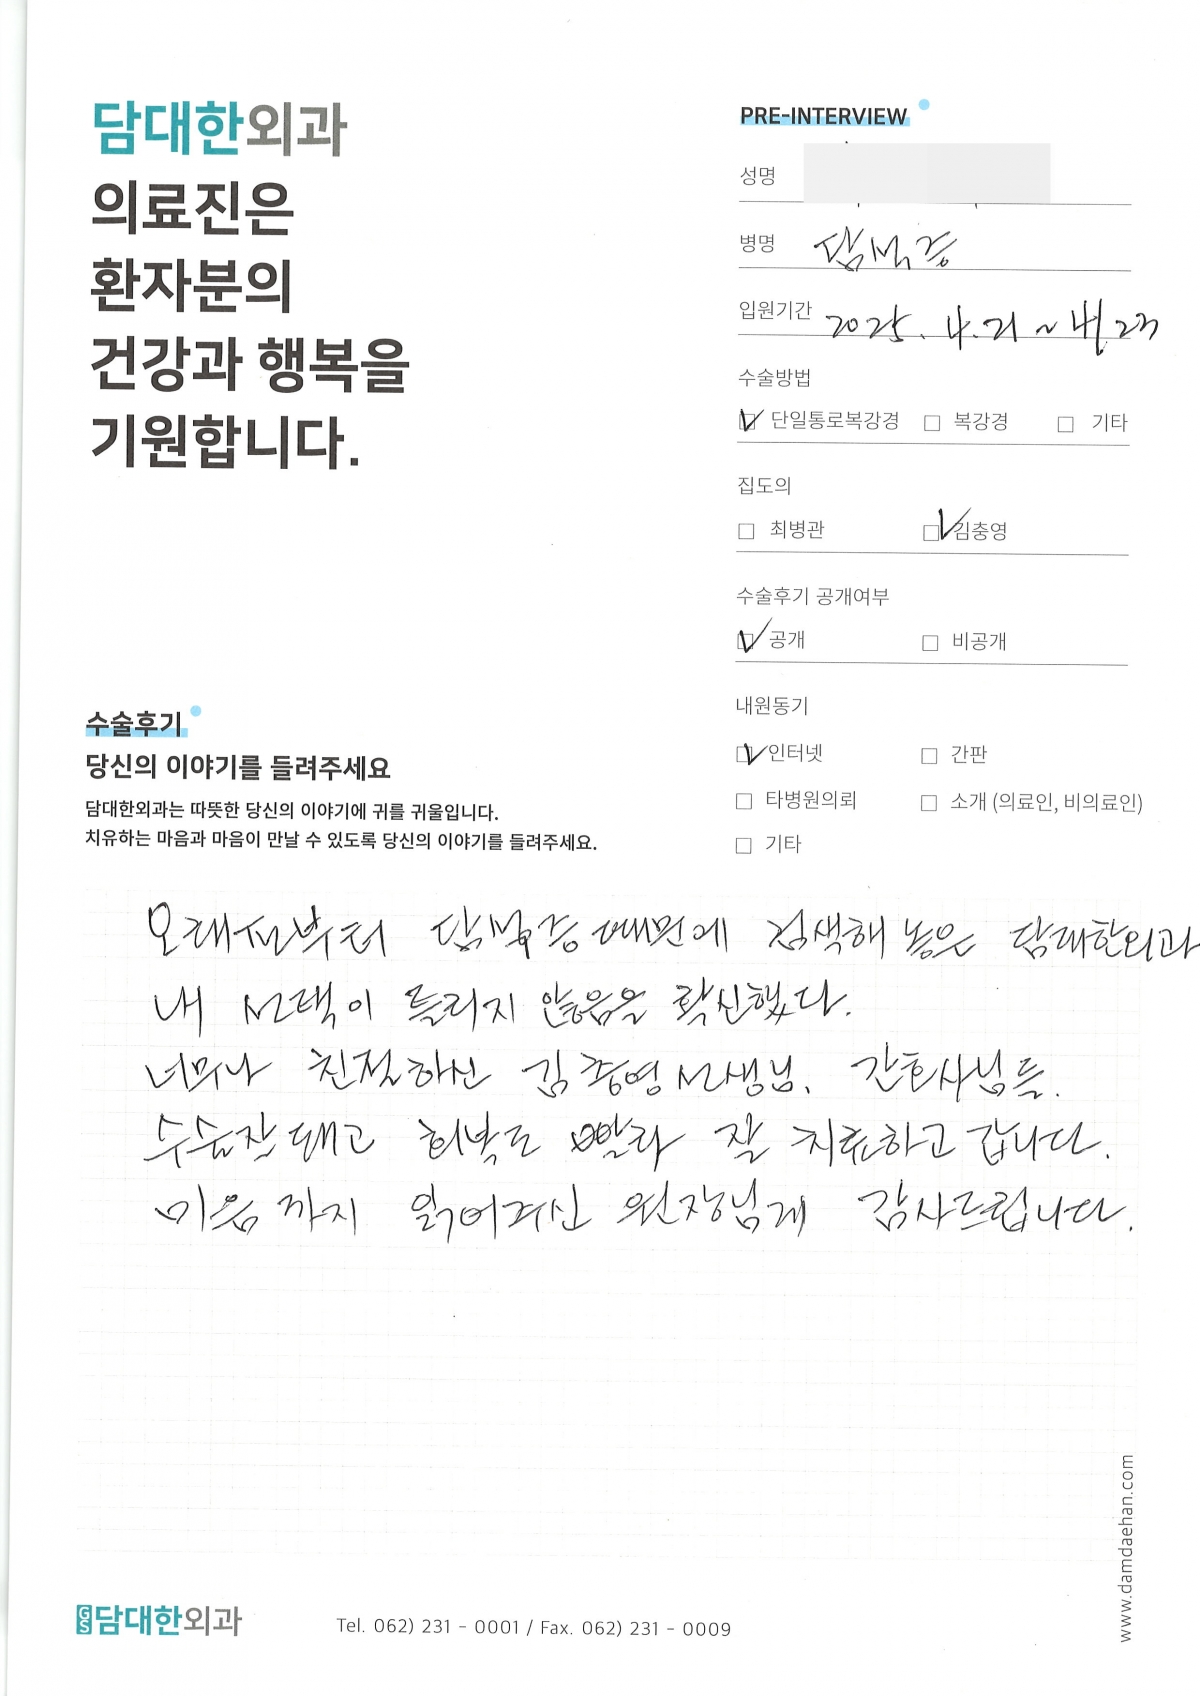 담대한외과
의료진은
환자분의
건강과 행복을
기원합니다.
PRE-INTERVIEW
성명
병명 담석증
입원기간 2025. 4. 21 ~ 4. 23
수술방법
단일통로복강경 복강경 기타
집도의
최병관 김충영
수술후기 공개여부
공개 비공개
내원동기
인터넷 간판
타병원의뢰 소개 (의료인, 비의료인)
기타
수술후기
당신의 이야기를 들려주세요
담대한외과는 따뜻한 당신의 이야기에 귀를 귀울입니다.
치유하는 마음과 마음이 만날 수 있도록 당신의 이야기를 들려주세요.
오래전부터 담석증 때문에 검색해 놓은 담대한외과
내 선택이 틀리지 않음을 확신했다.
너무나 친절하신 김충영 선생님. 간호사님들.
수술잘돼고 회복도 빨라 잘 치유하고 갑니다.
마음까지 읽어주신 원장님께 감사드립니다.
GS담대한외과
Tel. 062) 231 - 0001 / Fax. 062) 231 - 0009
www.damdaehan.com